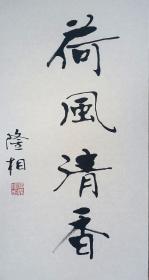 荷風清香
隆相